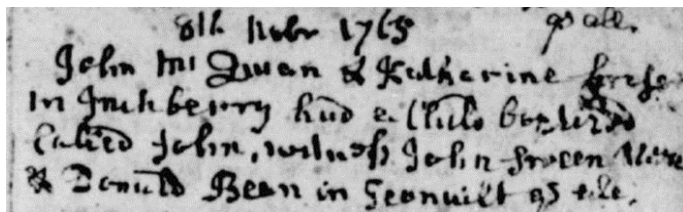 8th Nobr 1765 gs all.
John McQuan & Katharine Fraser
In Inchberry had a Child baptized
Called John, witness John
& Donald Bean in gs